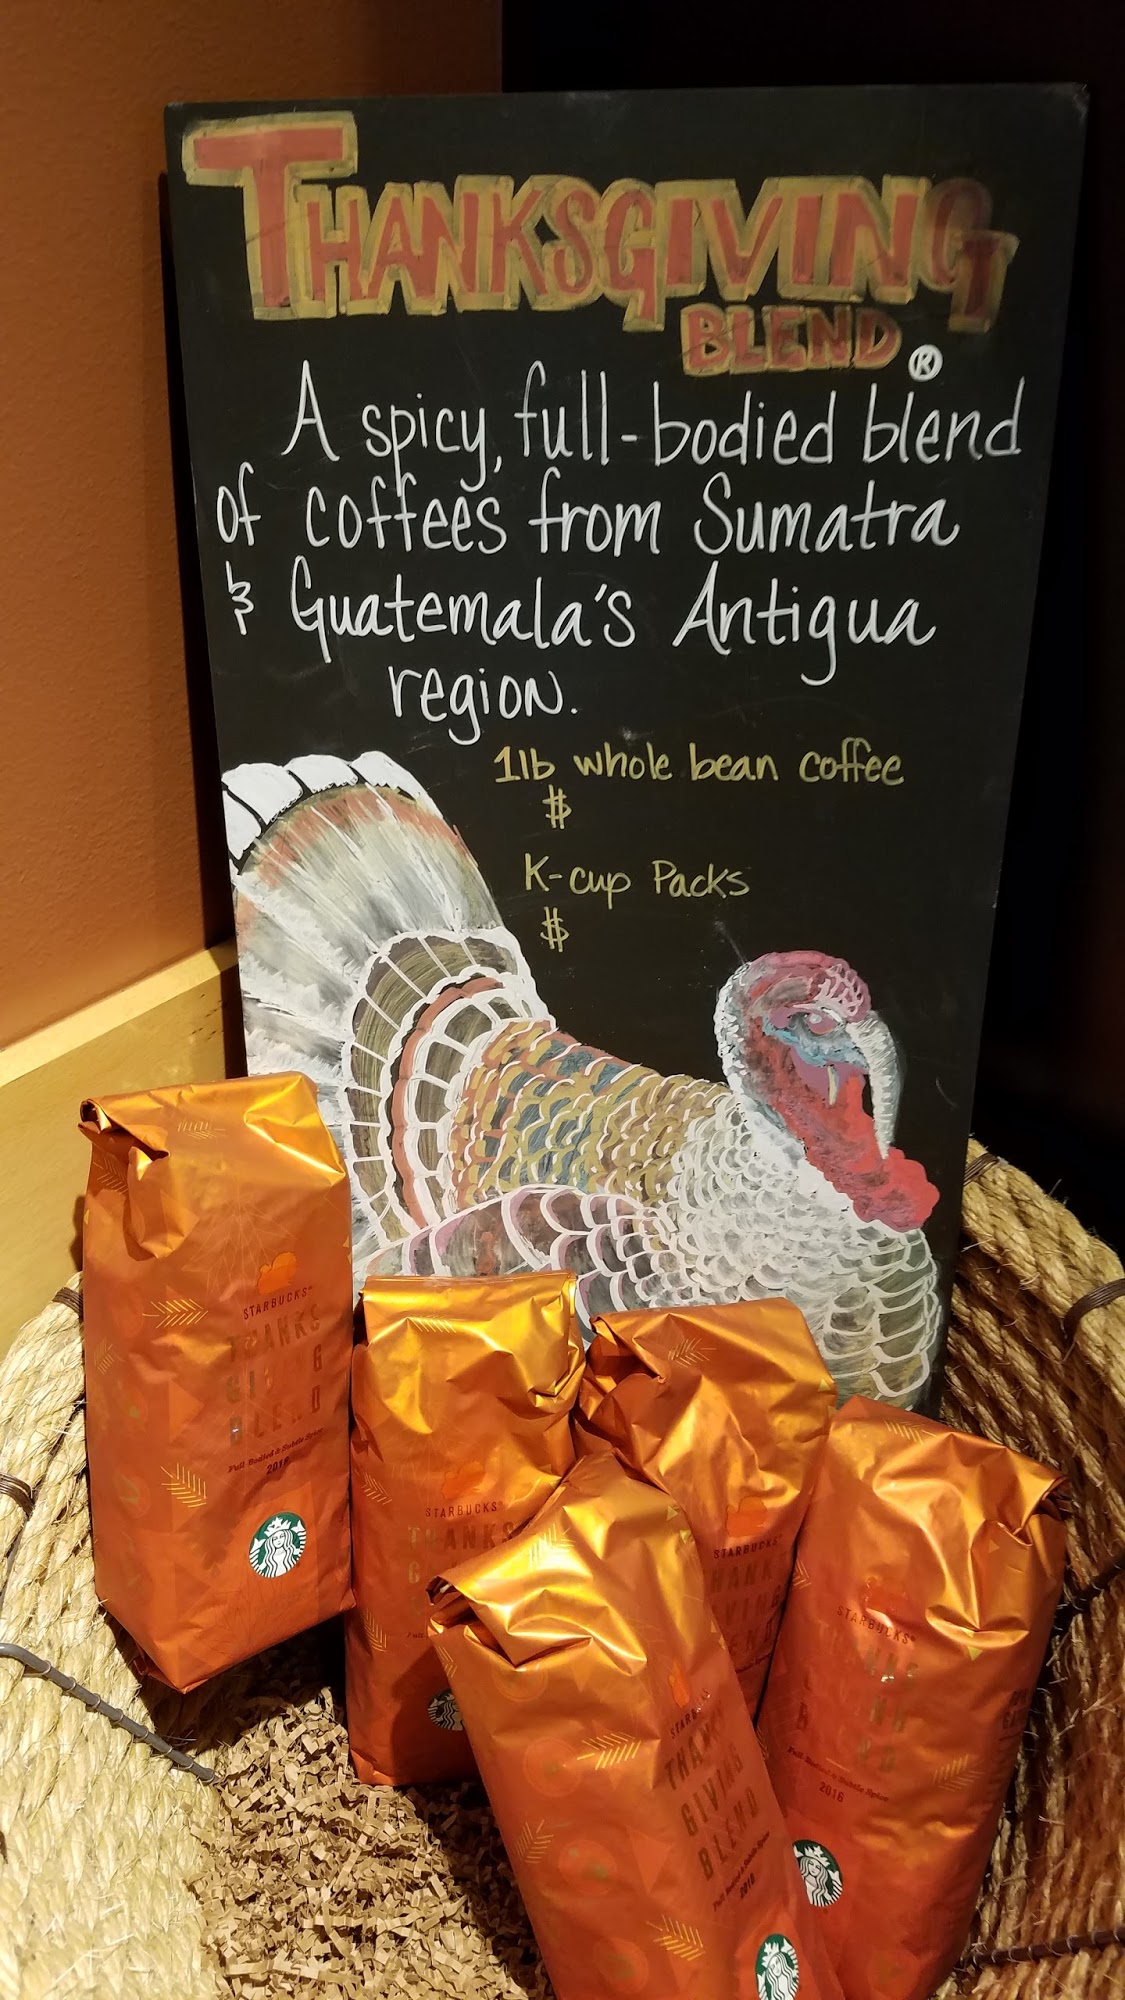 THANKSGIVING
BLEND ®
A spicy, full-bodied blend
of coffees from Sumatra
& Guatemala's Antigua
region.
1lb whole bean coffee
$
K-cup Packs
$
STARBUCKS®
THANKS
GIVING
BLEND
Full Bodied & Subtle Spice
2016
STARBUCKS®
THANKS
STARBUCKS®
STARBUCKS®
Full Bodied & Subtle Spice
2016
THANKS
GIVING
BLEND
Full Bodied & Subtle Spice
2016